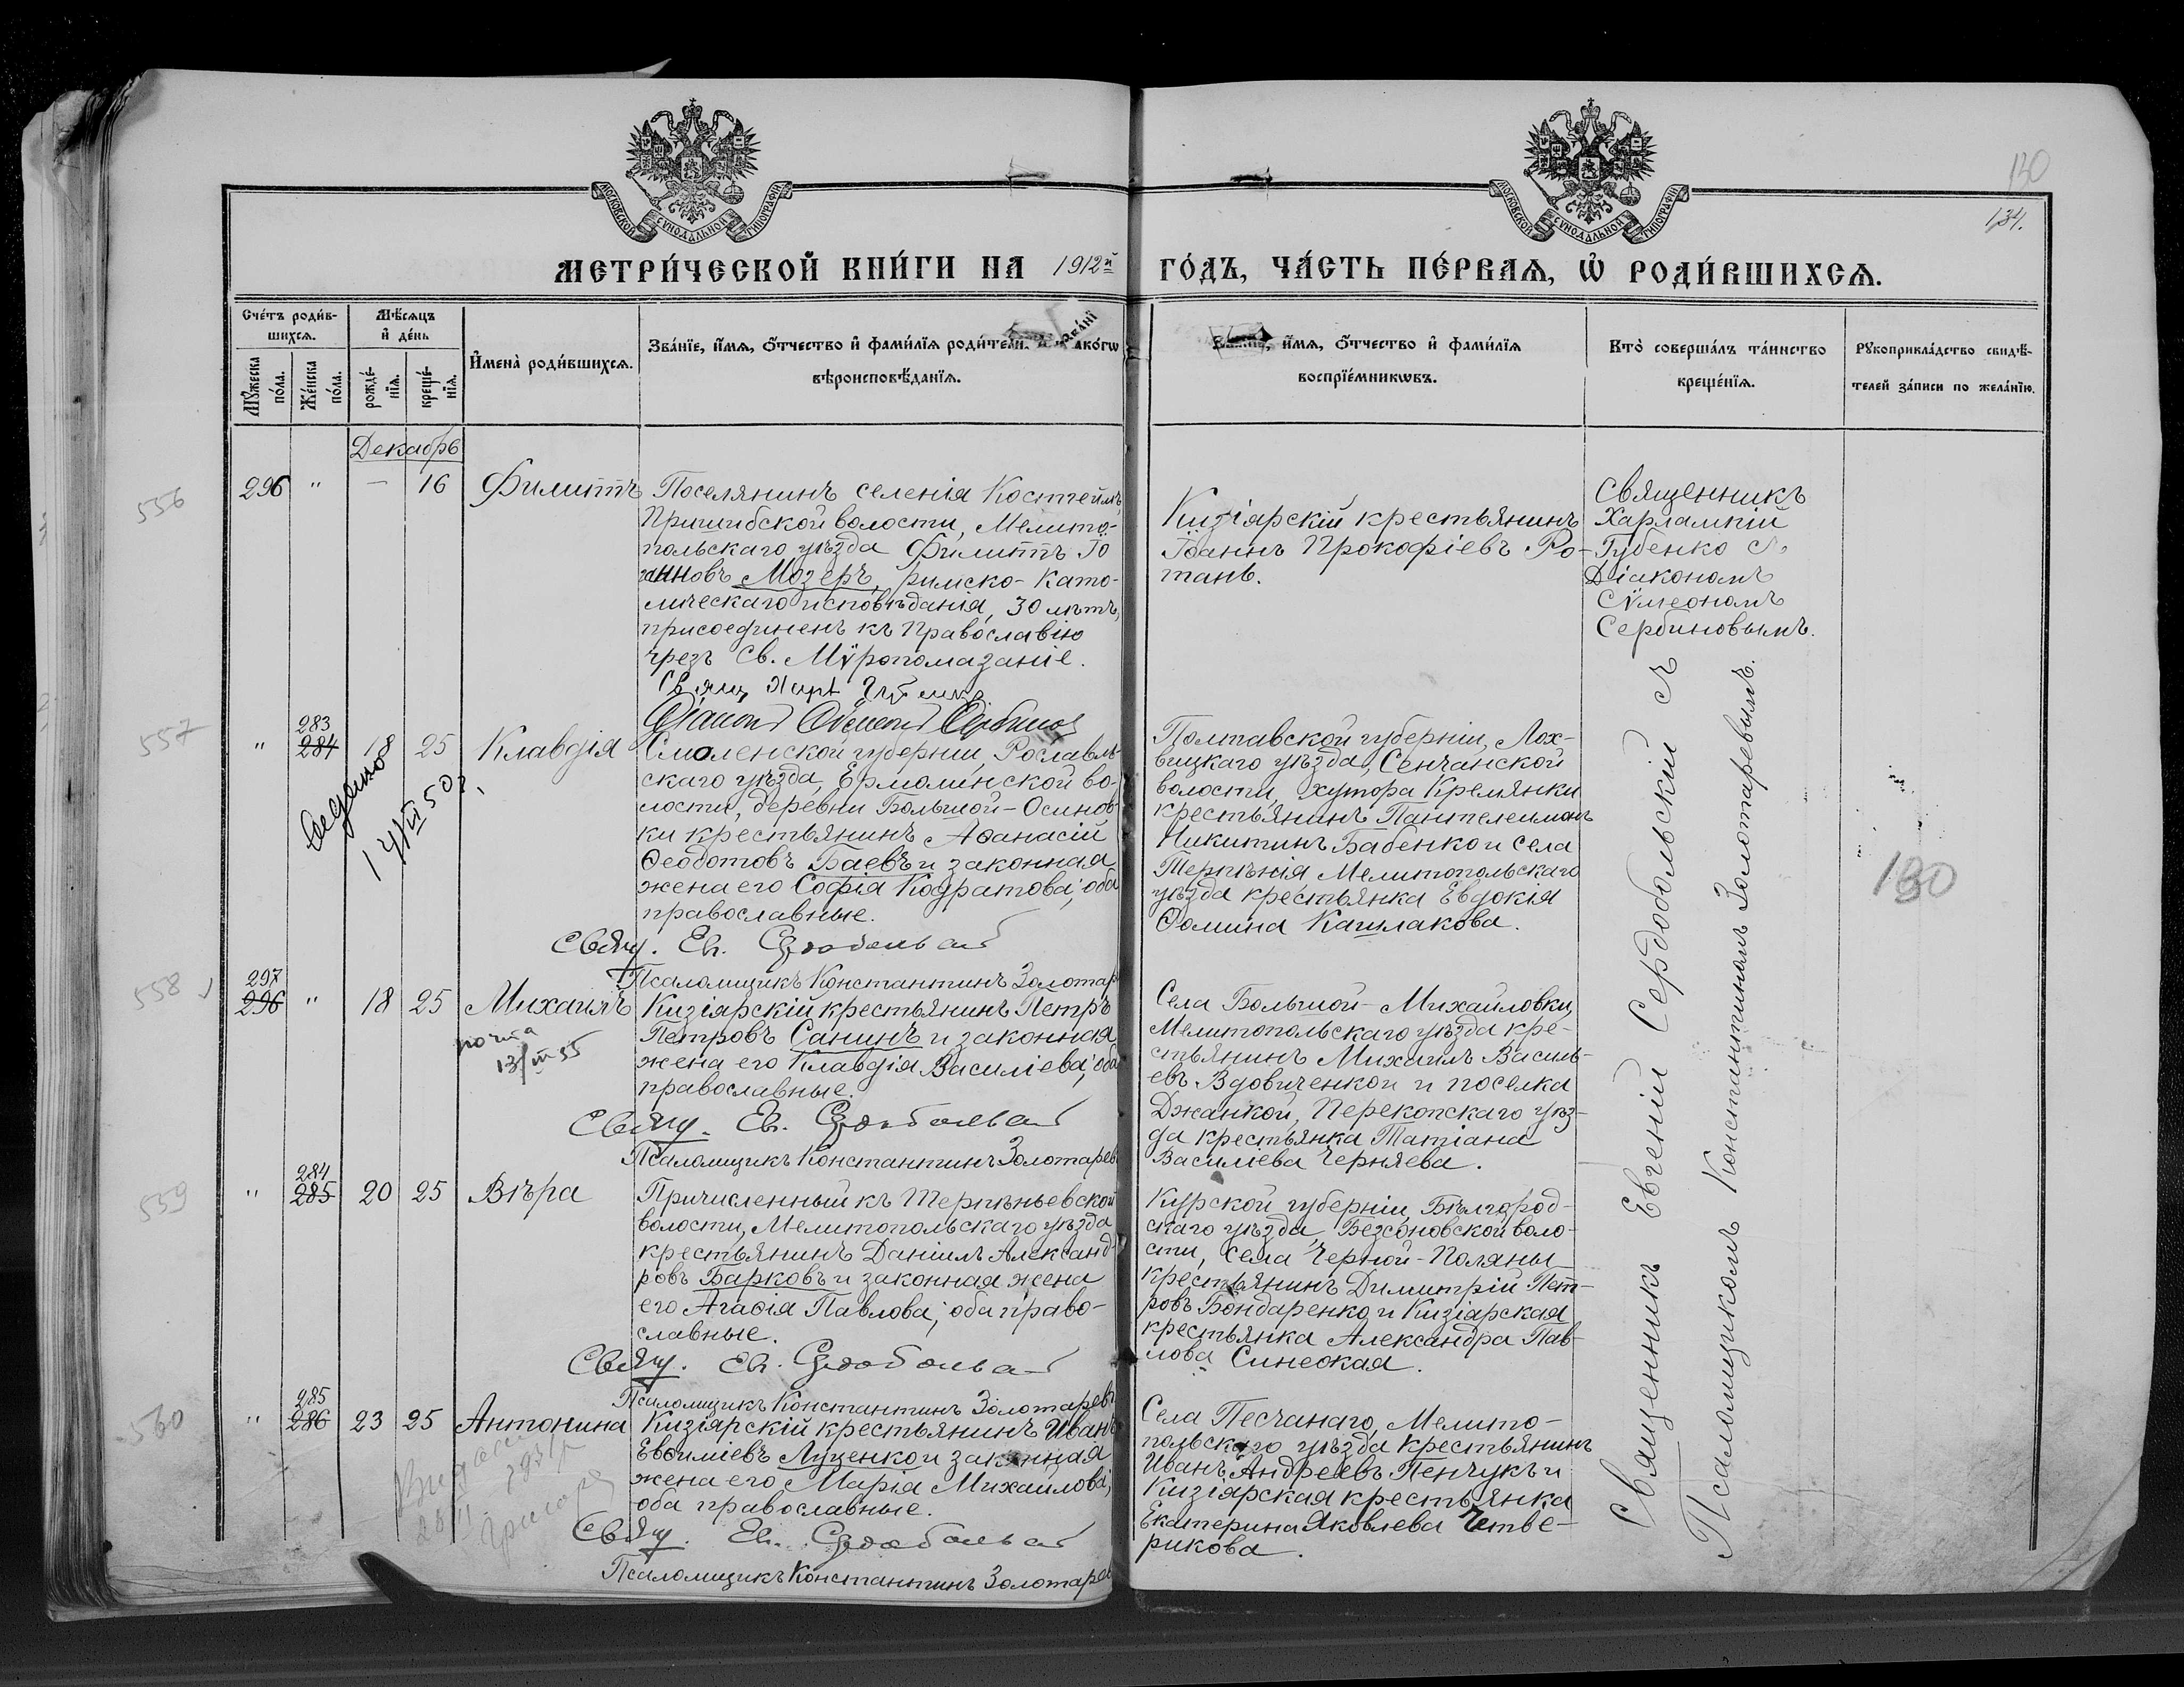 МОСКОВСКОЙ СѴНОДАЛЬНОЙ ТИПОГРАФІИ
МОСКОВСКОЙ СѴНОДАЛЬНОЙ ТИПОГРАФІИ
130
134.
МЕТРИ́ЧЕСКОЙ КНИ́ГИ НА 1912й ГО́ДЪ, ЧА́СТЬ ПЕ́РВАѦ, Ѡ РОДИ́ВШИХСѦ.
Счетъ родив-
шихсѧ.
Мужеска
пола.
Женска
пола.
Мѣсѧцъ
и день
рожде-
нїѧ.
креще-
нїѧ.
Имена родившихсѧ.
Званїе, имѧ, отчество и фамилїѧ родителей, и какогѡ
вѣроисповѣданїѧ.
Званїе, имѧ, отчество и фамилїѧ
воспрїемникѡвъ.
Кто совершалъ таинство
крещенїѧ.
Рукоприкладство свидѣ-
телей записи по желанїю.
Декабрь
556
296 " — 16 Филиппъ
Поселянинъ селенія Костейль,
Пришибской волости, Мелито-
польскаго уѣзда Филиппъ Іо
анновъ Мозеръ, римско-като-
лическаго исповѣданія, 30 лѣтъ,
присоединенъ къ Православію
чрезъ Св. Мѵропомазаніе.
Свящ Харл Губенко
Діаконъ Сѵмеонъ Сербиновъ
Кизіярскій крестьянинъ
Іоаннъ Прокофіевъ Ро-
тань.
Священникъ
Харлампій
Губенко съ
Діакономъ
Сѵмеономъ
Сербиновымъ.
557
" 283
284 18 25 Клавдія
Выдано
14/III 50 г.
Смоленской губерніи, Рославль-
скаго уѣзда, Ермолинской во-
лости, деревни Большой-Осинов-
ки крестьянинъ Аѳанасій
Ѳеодотовъ Баевъ и законная
жена его Софія Кодратова; оба
православные.
Свящ. Ев. Сердобольскій
Псаломщикъ Константинъ Золотар
Полтавской губерніи, Лох-
вицкаго уѣзда, Сенчанской
волости, хутора Кремянки
крестьянинъ Пантелеимонъ
Никитинъ Бабенко и села
Терпѣнія Мелитопольскаго
уѣзда крестьянка Евдокія
Ѳомина Кашлакова.
558
297
296 " 18 25 Михаилъ
почта
13/III 55
Кизіярскій крестьянинъ Петръ
Петровъ Санинъ и законная
жена его Клавдія Василіева; оба
православные.
Свящ. Ев. Сердобольскій
Псаломщикъ Константинъ Золотарев
Села Большой-Михайловки,
Мелитопольскаго уѣзда кре-
стьянинъ Михаилъ Василь-
евъ Вдовиченкои и поселка
Джанкой, Перекопскаго уѣз-
да крестьянка Татіана
Василіева Черняева.
559
" 284
285 20 25 Вѣра
Причисленный къ Терпѣньевской
волости, Мелитопольскаго уѣзда
крестьянинъ Даніилъ Александ-
ровъ Барковъ и законная жена
его Агаѳія Павлова; оба право-
славные.
Свящ. Ев. Сердобольскій
Псаломщикъ Константинъ Золотаревъ
Курской губерніи, Бѣлгород-
скаго уѣзда, Безсоновской воло-
сти, села Черной-Поляны
крестьянинъ Димитрій Пет-
ровъ Бондаренко и Кизіарская
крестьянка Александра Пав-
лова Синеокая.
560
" 285
286 23 25 Антонина
Кизіярскій крестьянинъ Иванъ
Евѳиміевъ Луценко и законная
жена его Марія Михаилова;
оба православные.
Свящ. Ев. Сердобольскій
Псаломщикъ Константинъ Золотарев
Села Песчанаго, Мелито-
польскаго уѣзда крестьянинъ
Иванъ Андреевъ Пенчукъ и
Кизіярская крестьянка
Екатерина Яковлева Четве-
рикова.
Священникъ Евгеній Сердобольскій съ
Псаломщикомъ Константиномъ Золотаревымъ.
130